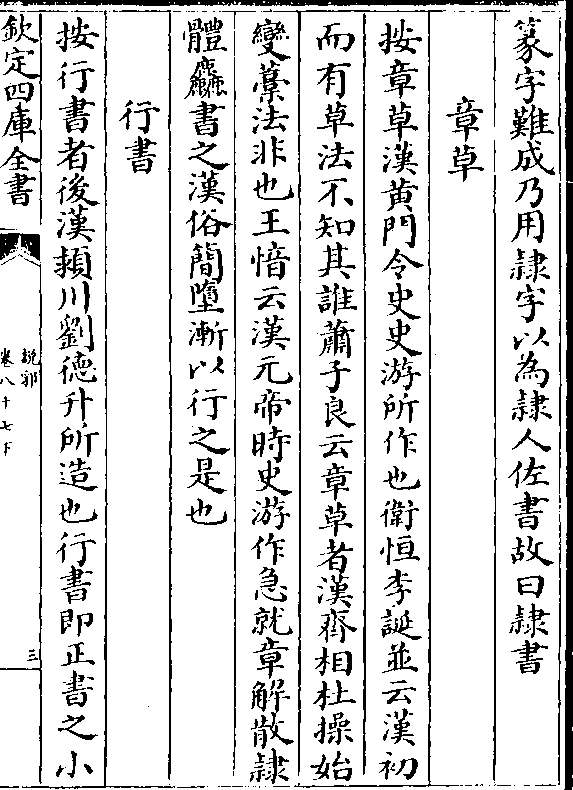 篆字難成乃用隸字以為隸人佐書故曰隸書
章草
按章草漢黄門令史史游所作也衛恒李誕並云漢初
而有草法不知其誰蕭子良云章草者漢齊相杜操始
變藁法非也王愔云漢元帝時史游作急就章解散隸
體麤書之漢俗簡墮漸以行之是也
行書
按行書者後漢頴川劉德升所造也行書即正書之小
欽定四庫全書
說郛
卷八十七下
三